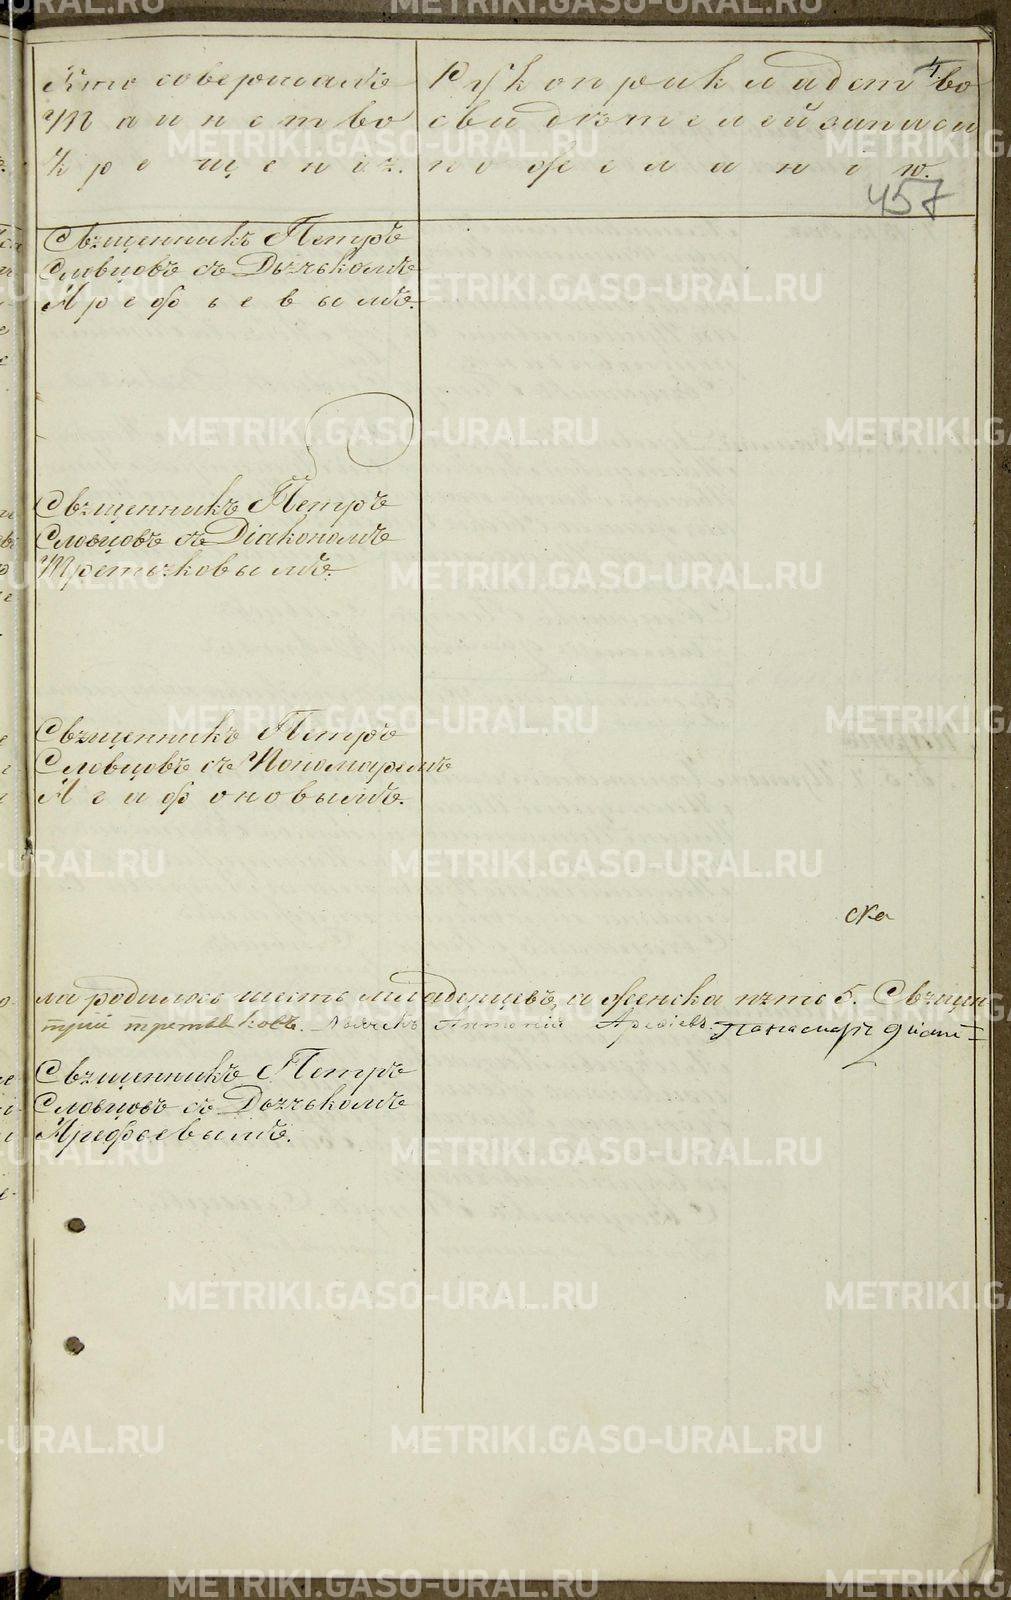 Кто совершалъ
Таинство
Крещенія.
Рукоприкладство
свидѣтелей записи
по желанію.
4
457
Священникъ Петръ
Словцовъ съ Дьячкомъ
Арефьевымъ.
Священникъ Петръ
Словцовъ съ Діакономъ
Третьяковымъ.
Священникъ Петръ
Словцовъ съ Пономаремъ
Агафоновымъ.
ска
ла родилось шесть младенцевъ, а женска пять 5. Священ
трий третьяковъ. Дьячекъ Антоній Арефіевъ. Панамарь
Священникъ Петръ
Словцовъ съ Дьячкомъ
Арефьевымъ.
METRIKI.GASO-URAL.RU